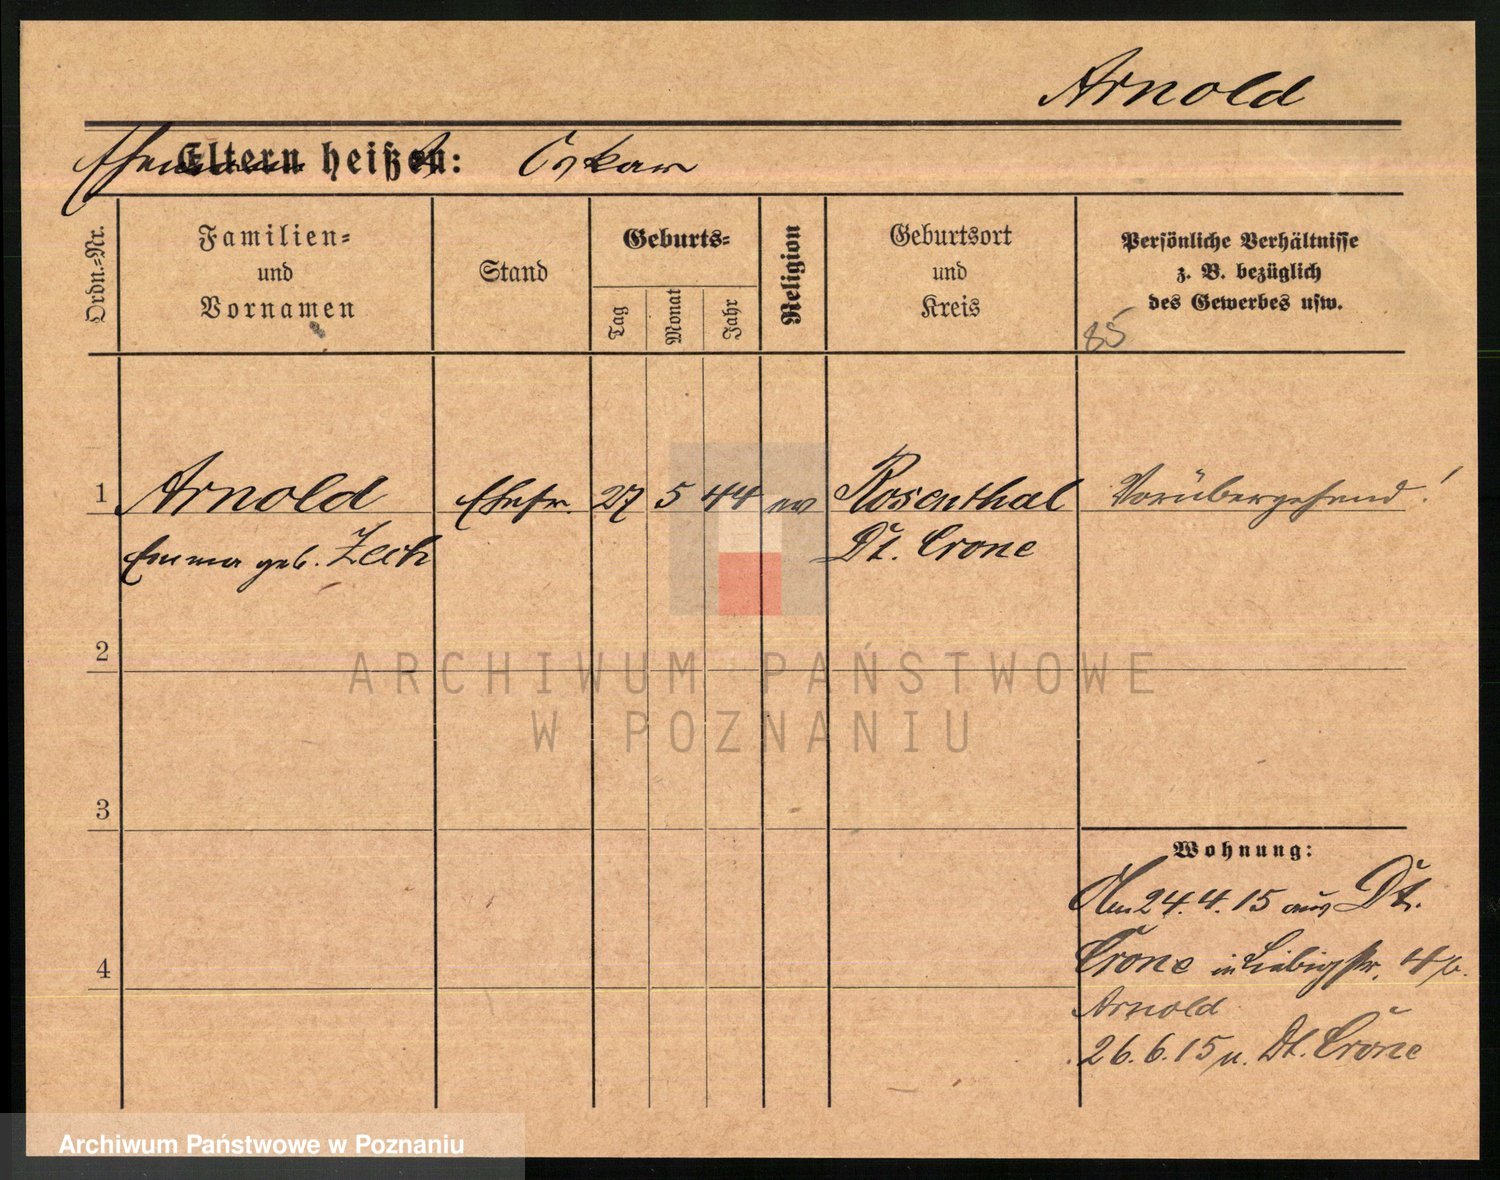 Arnold
Ehemann heißt: Oskar
Ordn.=Nr.
Familien=
und
Vornamen
Stand
Geburts=
Tag
Monat
Jahr
Religion
Geburtsort
und
Kreis
Persönliche Verhältnisse
z. B. bezüglich
des Gewerbes usw.
85
1 Arnold Ehefr. 27 5 44 ev Rosenthal Vorübergehend!
Emma geb. Zech Dt. Crone
2
3
4
Wohnung:
Am 24.4.15 aus Dt.
Crone in Liebigstr. 4 b.
Arnold
26.6.15 n. Dt. Crone
ARCHIWUM PAŃSTWOWE
W POZNANIU
Archiwum Państwowe w Poznaniu